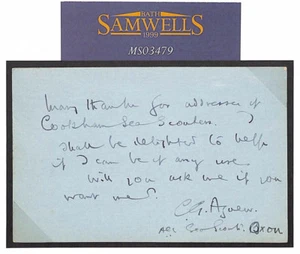 BATH
SAMWELLS
1999
MS03479
Many thanks for addresses of
Cookham Sea Scouts. I
shall be delighted to help
if I can be of any use
Will you ask me if you
want me?
C.G. Agnew.
Sea Scouts. Oxon